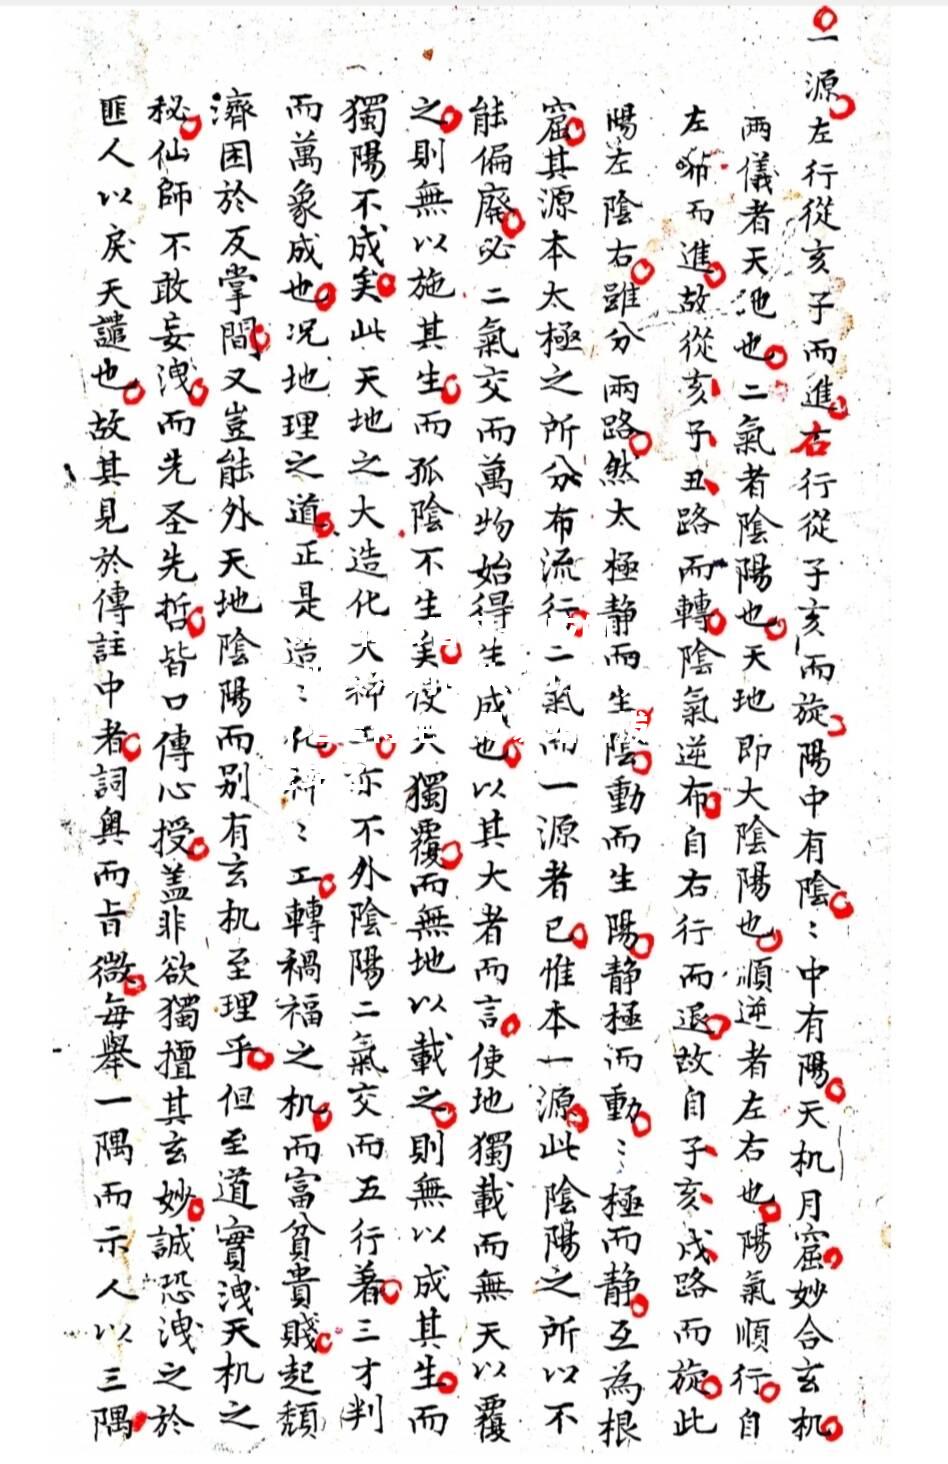 一源左行從亥子而進右行從子亥而旋陽中有陰〻中有陽天机月窟妙合玄机
兩儀者天地也二氣者陰陽也天地即大陰陽也順逆者左右也陽氣順行自
左而進故從亥子丑路而轉陰氣逆布自右行而退故自子亥戌路而旋此
陽左陰右雖分兩路然太極静而生陰動而生陽静極而動〻極而静互為根
窟其源本太極之所分布流行二氣而一源者已惟本一源此陰陽之所以不
能偏廢必二氣交而萬物始得生成也以其大者而言使地獨載而無天以覆
之則無以施其生而孤陰不生矣使天獨覆而無地以載之則無以成其生而
獨陽不成矣此天地之大造化大神工亦不外陰陽二氣交而五行着三才判
而萬象成也况地理之道正是造〻化神〻工轉禍福之机而富貧貴賤起頽
濟困於反掌間又豈能外天地陰陽而别有玄机至理乎但至道實洩天机之
秘仙師不敢妄洩而先圣先哲皆口傳心授蓋非欲獨擅其玄妙誠恐洩之於
匪人以戾天譴也故其見於傳註中者詞奥而旨微每舉一隅而示人以三隅